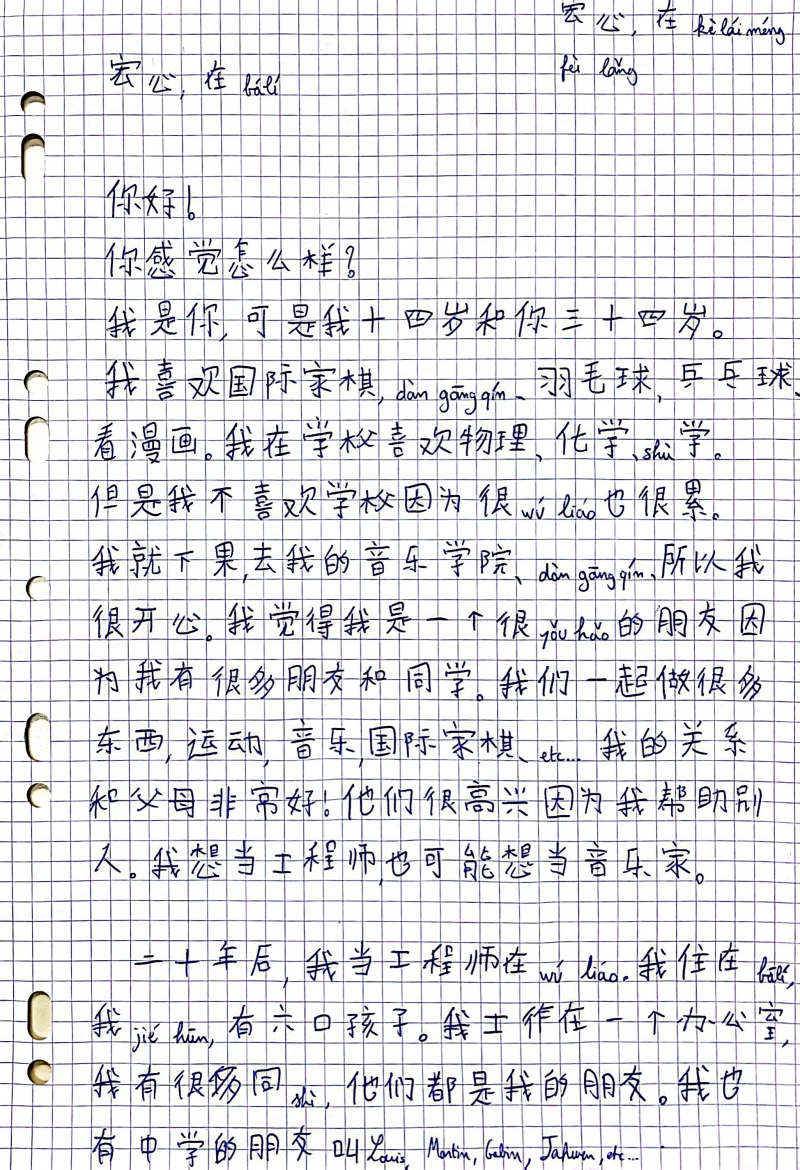 宏心, 在 kè lái méng
fèi lǎng
宏心, 在 bālí
你好!
你感觉怎么样?
我是你, 可是我十四岁和你三十四岁。
我喜欢国际家棋, dàn gāng qín、羽毛球, 乒乓球、
看漫画。我在学校喜欢物理、化学、shù学。
但是我不喜欢学校因为很 wú liáo 也很累。
我就下果, 去我的音乐学院、dàn gāng qín、所以我
很开心。我觉得我是一个很 yǒu hǎo 的朋友因
为我有很多朋友和同学。我们一起做很多
东西, 运动, 音乐, 国际家棋、etc... 我的关系
和父母非常好! 他们很高兴因为我帮助别
人。我想当工程师, 也可能想当音乐家。
二十年后, 我当工程师在 wú liáo. 我住在 bālí,
我 jié hūn, 有六口孩子。我工作在一个办公室,
我有很多同 shì, 他们都是我的朋友。我也
有中学的朋友叫 Louis, Martin, Gabin, etc...